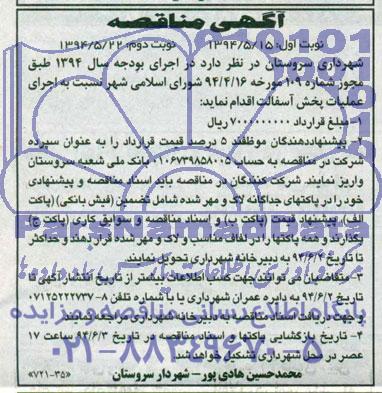 آگهی مناقصه
نوبت اول: ۱۳۹۴/۵/۱۵ نوبت دوم: ۱۳۹۴/۵/۲۲
شهرداری سروستان در نظر دارد در اجرای بودجه سال ۱۳۹۴ طبق
مجوز شماره ۱۰۹ مورخه ۹۴/۴/۱۶ شورای اسلامی شهر نسبت به اجرای
عملیات پخش آسفالت اقدام نماید:
۱- مبلغ قرارداد ۷۰۰۰۰۰۰۰۰۰ ریال
پیشنهاددهندگان موظفند ۵ درصد قیمت قرارداد را به عنوان سپرده
شرکت در مناقصه به حساب ۰۱۰۶۷۳۹۸۵۸۰۰۵ بانک ملی شعبه سروستان
واریز نمایند. شرکت کنندگان در مناقصه باید اسناد مناقصه و پیشنهادی
خود را در پاکتهای جداگانه لاک و مهر شده شامل تضمین (فیش بانکی) (پاکت
الف)، پیشنهاد قیمت (پاکت ب) و اسناد مناقصه و سوابق کاری (پاکت ج)
بگذارند و همه پاکتها را در لفاف مناسب و لاک و مهر شده قرار دهند و حداکثر
تا تاریخ ۹۴/۶/۲ به دبیرخانه شهرداری تحویل نمایند.
۳- متقاضیان می توانند جهت کسب اطلاعات بیشتر از تاریخ انتشار آگهی تا
تاریخ ۹۴/۶/۲ به دایره عمران شهرداری یا با شماره تلفن ۸-۰۷۱۲۵۲۲۲۷۳۷
و جهت دریافت اسناد مناقصه به دبیرخانه شهرداری مراجعه نمایند.
۴- تاریخ بازگشایی پاکتها و اسناد مناقصه در تاریخ ۹۴/۶/۳ ساعت ۱۷
عصر در محل شهرداری تشکیل خواهد شد.
محمدحسین هادی پور - شهردار سروستان «۷۲۱-۳۵»
ParsNamadData
پایگاه اطلاع رسانی مناقصه و مزایده
۰۲۱-۸۸۳۴۹۶۷۰-۵